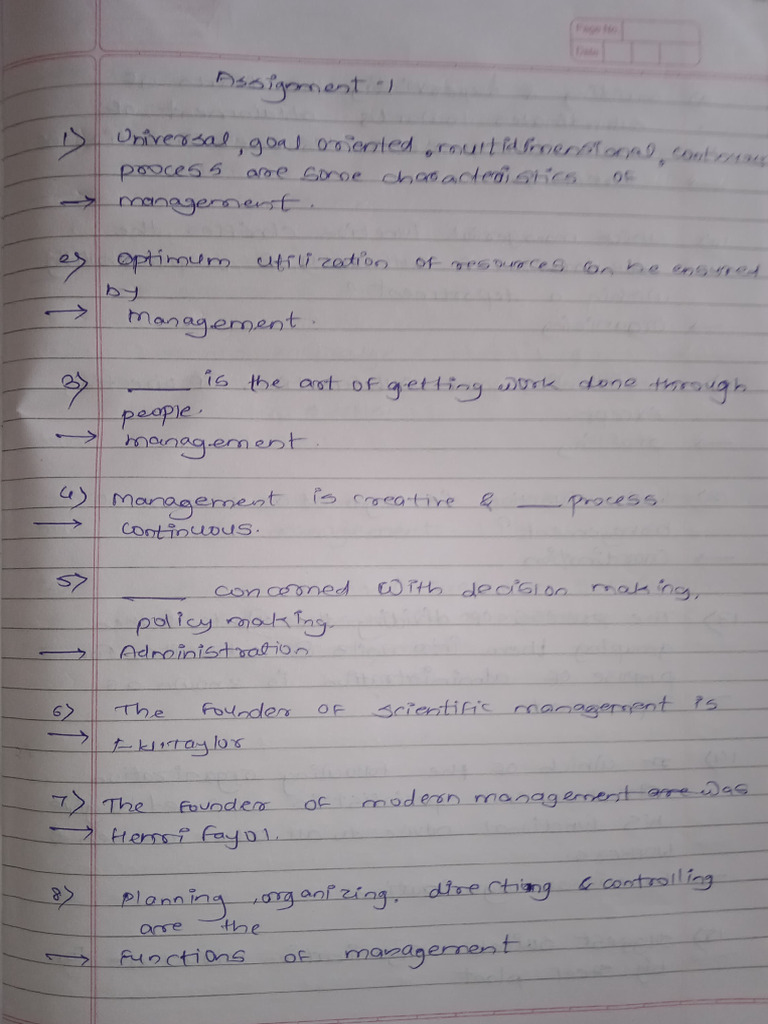 Page No
Date
Assignment :1
1) Universal, goal oriented, multidimensional, continuous
process are some characteristics of
→ management.
2) Optimum utilization of resources can be ensured
by
→ Management.
3) ____ is the art of getting work done through
people.
→ management.
4) Management is creative & ___ process
→ continuous.
5) ____ concerned with decision making,
policy making.
→ Administration
6) The founder of scientific management is
→ Taylor
7) The founder of modern management are was
→ Henri Fayol.
8) planning, organizing, directing & controlling
are the
→ functions of management